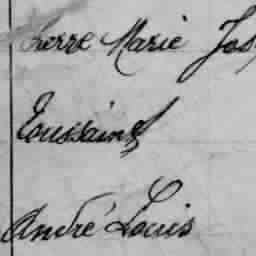 Pierre Marie Jos
Toussaint
André Louis